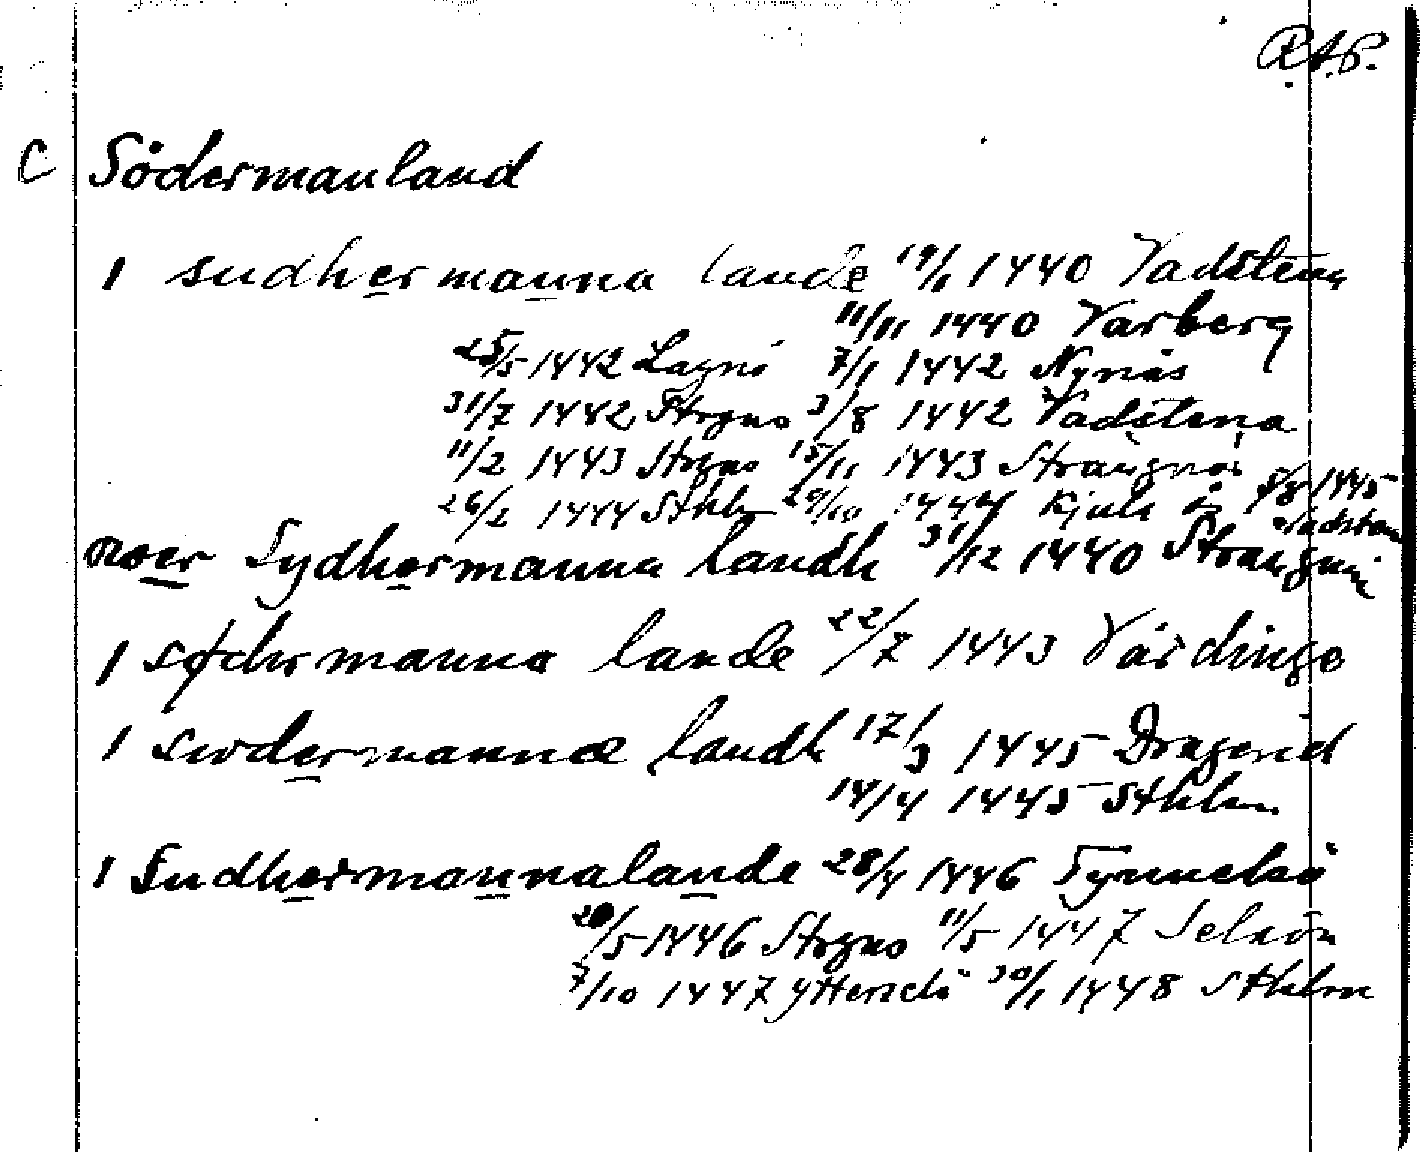 R.A.P.
C Södermanland
I sudhermanna lande 19/1 1440 Vadstena
11/11 1440 Varberg
25/5 1442 Lagnö 7/1 1442 Nynäs
31/7 1442 Strgnäs 3/8 1442 Vadstena
11/2 1443 Strgnäs 15/11 1443 Strängnäs
26/2 1444 Sthlm 29/10 1444 8/8 1445
Vadstena
Sydhermanna landh 31/12 1440 Strängnäs
I sødermanna lande 22/7 1443 Vårdinge
I swdermannæ landh 17/3 1445
14/4 1445 Sthlm
I Sudhermannalande 28/4 1446 Tynnelsö
20/5 1446 Strgnäs 11/5 1447 Selaön
7/10 1447 Ytterselö 30/1 1448 Sthlm